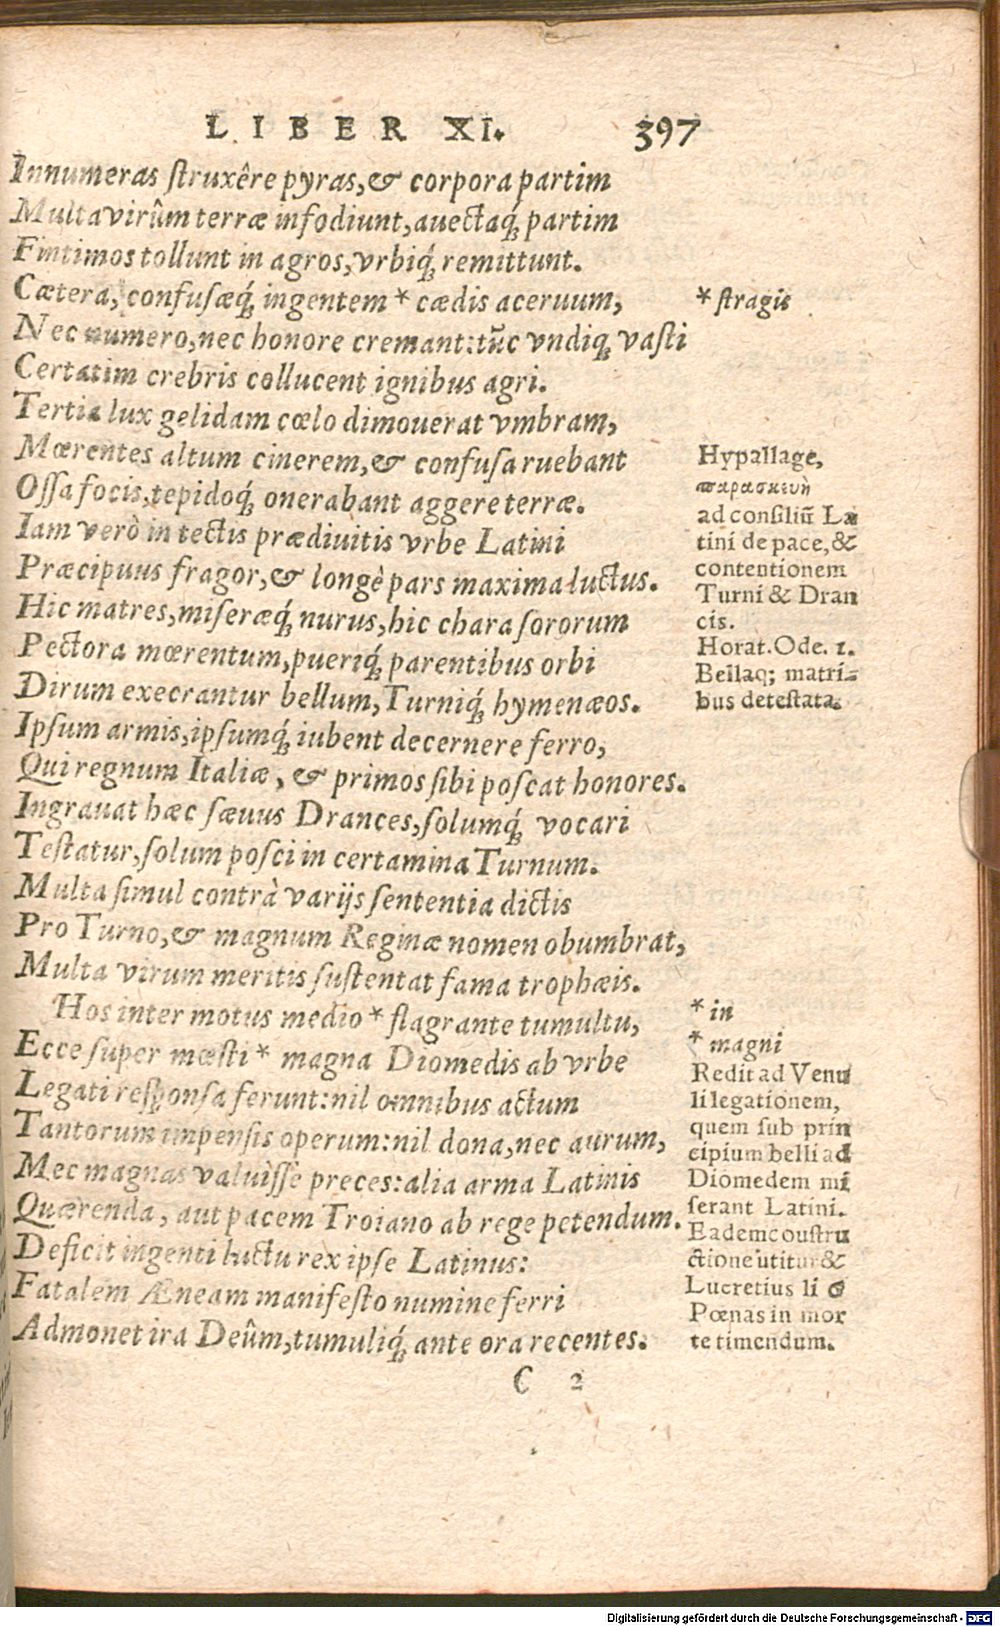 LIBER XI. 397
Innumeras ſtruxêre pyras,& corpora partim
Multa virûm terræ infodiunt, auectaq́; partim
Finitimos tollunt in agros, vrbiq́; remittunt.
Cætera, confuſæq́; ingentem * cædis aceruum,
Nec numero, nec honore cremant: tūc vndiq; vaſti
Certatim crebris collucent ignibus agri.
Tertia lux gelidam cœlo dimouerat vmbram,
Mœrentes altum cinerem, & confuſa ruebant
Oſſa focis, tepidoq́; onerabant aggere terræ.
Iam verò in tectis prædiuitis vrbe Latini
Præcipuus fragor, & longè pars maxima luctus.
Hic matres, miſeræq́; nurus, hic chara ſororum
Pectora mœrentum, pueriq́; parentibus orbi
Dirum execrantur bellum, Turniq́; hymenæos.
Ipſum armis, ipſumq́; iubent decernere ferro,
Qui regnum Italiæ, & primos ſibi poſcat honores.
Ingrauat hæc ſæuus Drances, ſolumq́; vocari
Teſtatur, ſolum poſci in certamina Turnum.
Multa ſimul contrà varijs ſententia dictis
Pro Turno, & magnum Reginæ nomen obumbrat,
Multa virum meritis ſuſtentat fama trophæis.
Hos inter motus medio * flagrante tumultu,
Ecce ſuper mæſti * magna Diomedis ab vrbe
Legati reſponſa ferunt: nil omnibus actum
Tantorum impenſis operum: nil dona, nec aurum,
Mec magnas valuìſſè preces: alia arma Latinis
Quærenda, aut pacem Troiano ab rege petendum.
Deficit ingenti luctu rex ipſe Latinus:
Fatalem Æneam manifeſto numine ferri
Admonet ira Deûm, tumuliq́; ante ora recentes.
C 2
* ſtragis
Hypallage,
παρασκευὴ
ad conſiliū La
tini de pace, &
contentionem
Turni & Dran
cis.
Horat. Ode. 1.
Bellaq; matri-
bus deteſtata.
* in
* magni
Redit ad Venu
li legationem,
quem ſub prin
cipium belli ad
Diomedem mi
ſerant Latini.
Eadem couſtru
ctione utitur &
Lucretius li
Pœnas in mor
te timendum.
Digitalisierung gefördert durch die Deutsche Forschungsgemeinschaft - DFG